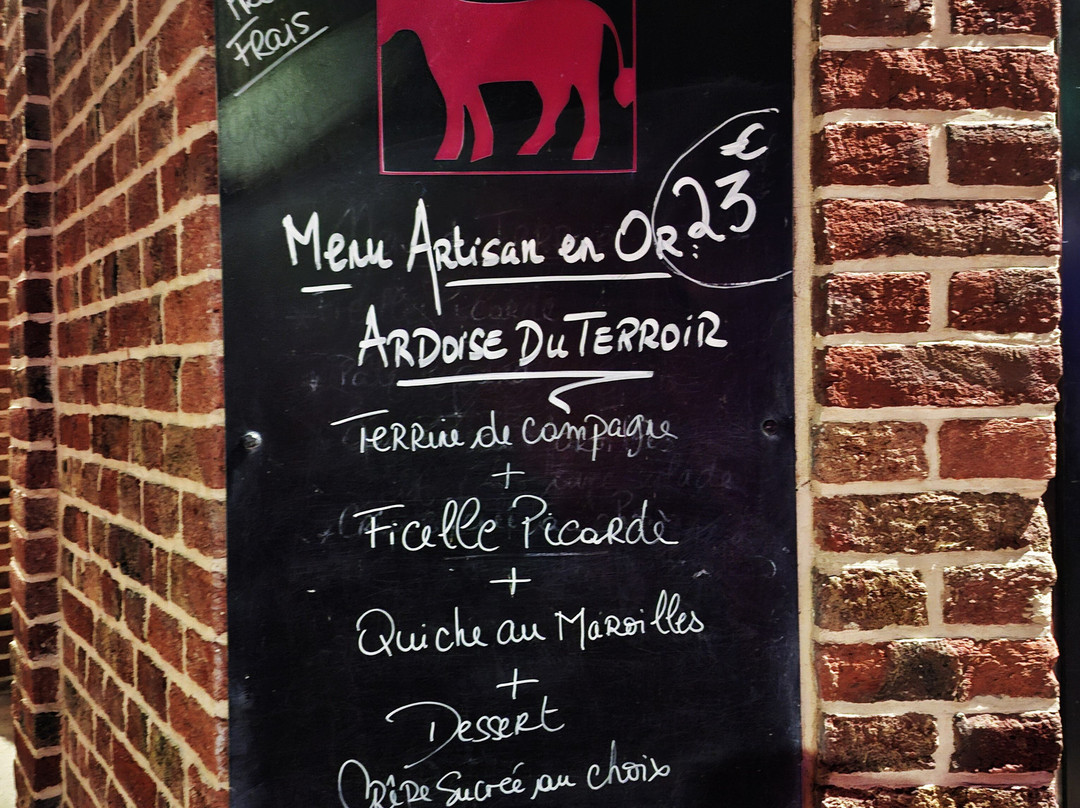 Frais
€
Menu Artisan en Or: 23
ARDOISE DU TERROIR
Terrine de Campagne
+
Ficelle Picarde
+
Quiche au Maroilles
+
Dessert
Crêpe Sucrée au choix